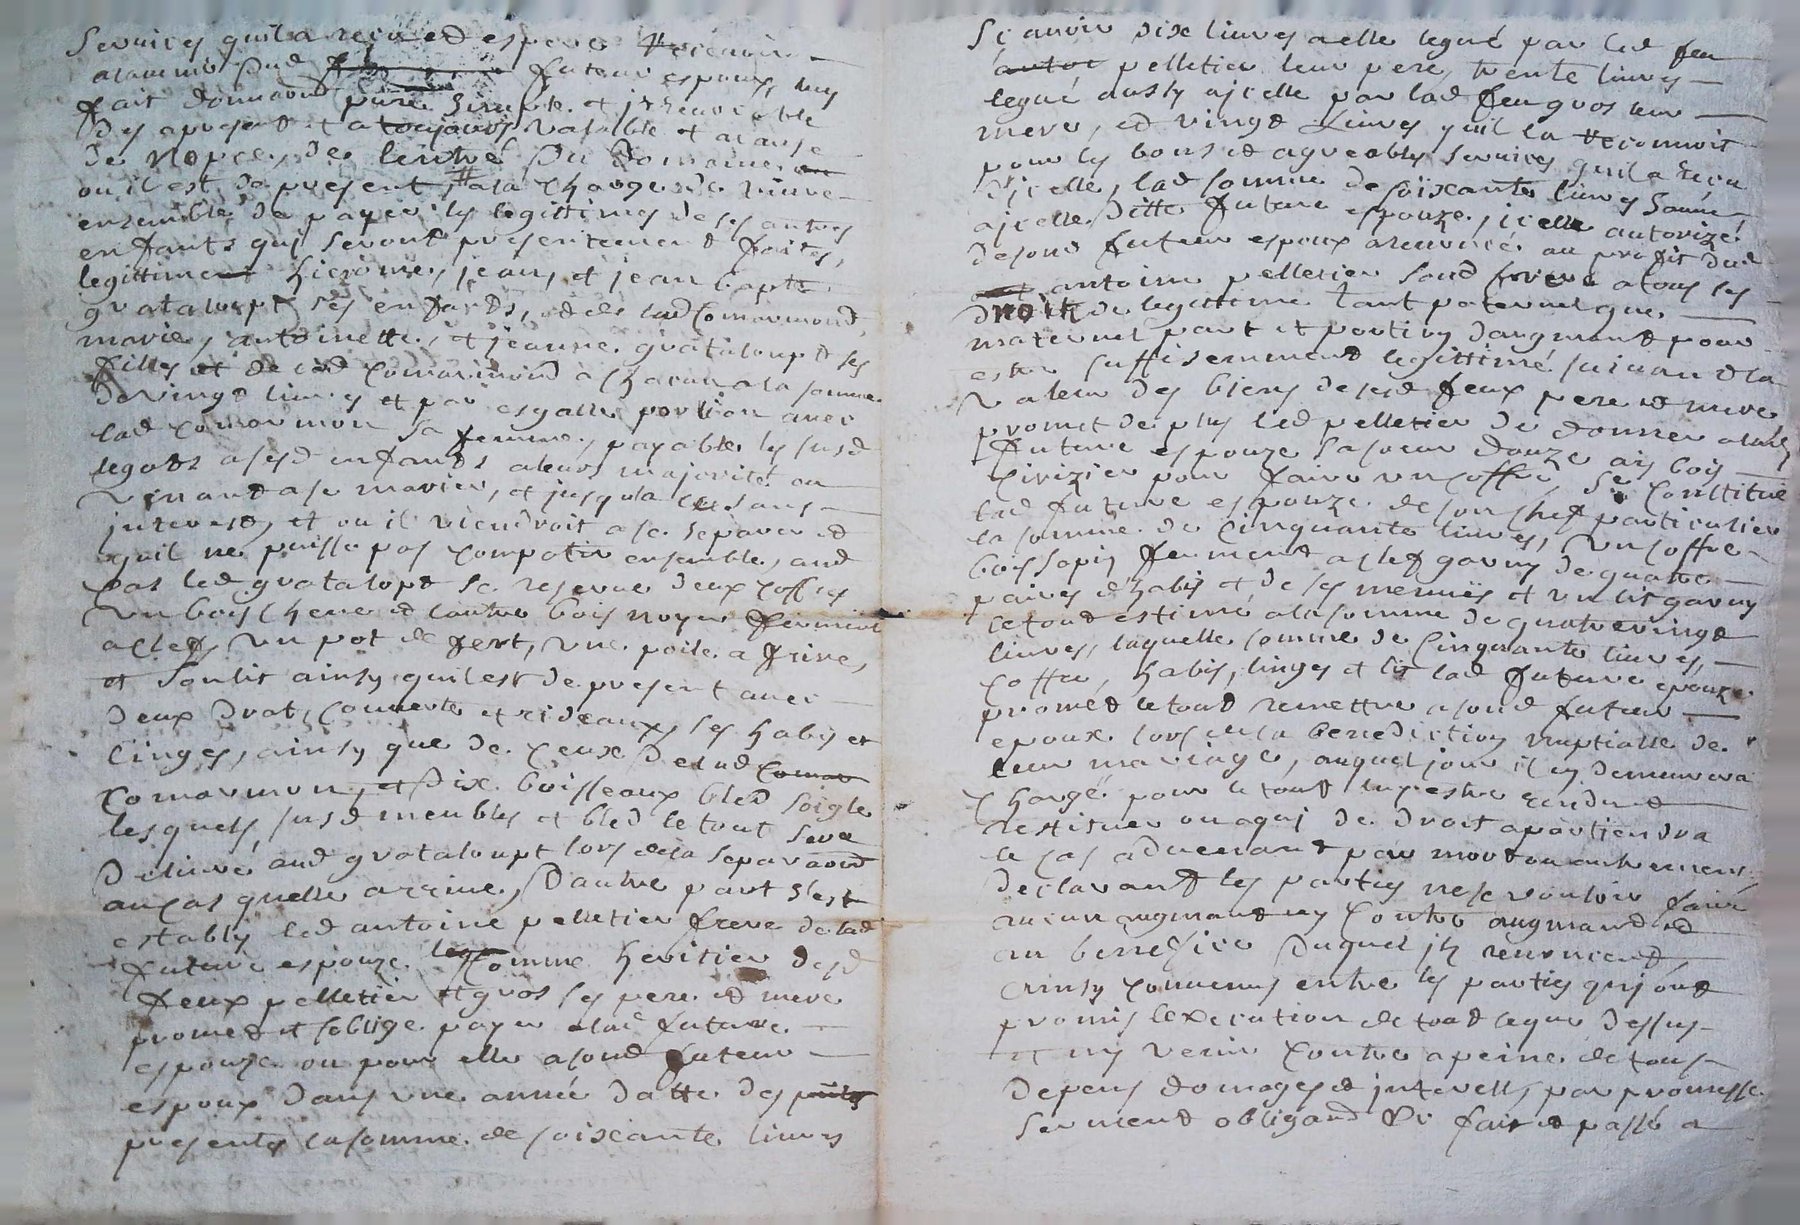 services quil a reçu et espere recevoir
a lavenir dud futeur espoux, luy
fait donnaōn pure simple et irrevocable
des apresent et a toujours valable et a cause
de nopces, de lentré du domaine
ou il est de present, a la charge de vivre
ensemble de payer les legittimes de ses autres
enfants qui seront presentement faites,
legittiment hierome, jean, et jean bapte
grataloupt ses enfants, et de lad Comarmond,
marie, antoinette, et jeanne grataloupt ses
filles et de lad Comarmond a chacun a la somme
de vingt livres et par esgalle portion avec
lad Comarmon sa femme, payable les susd
legats a sesd enfants a leur majorité ou
venant a se marier, et jusqu la sans
interest, et ou il viendroit a se separer et
quil ne puisse pas compatir ensemble, aud
cas led grataloupt se reserve deux coffres
un bois chene et lautre bois noyer fermant
a clef, un pot de fert, une poile a frire,
et son lit ainsy quil est de present avec
deux drat, couverte et rideaux, ses habis et
linges, ainsy que de ceux de lad Comar
Comarmon, et dix boisseaux bled soigle
lesquels susd meubles et bled le tout sera
delivré aud grataloupt lors de la separaōn
au cas quelle arrive, dautre part s'est
estably led antoine pelletier frere de lad
future espouze comme heritier desd
feux pelletier et gros ses pere et mere
promet et soblige payer a lad future
espouze ou pour elle a sond futeur
espoux dans une année datte des
presentes la somme de soixante livres
sçavoir dix livres a elle legué par led feu
antoi pelletier leur pere, trente livres
legué aussy a jcelle par lad feu gros leur
mere, et vingt livres quil la reconnoit
pour les bons et agreables services quil a reçu
d'jcelle, lad somme de soixante livres donné
a jcelle ditte future espouze, jcelle autorizé
de sond futeur espoux a renoncé au profit dud
antoine pelletier sond frere a tous ses
droit de legittime tant paternel que
maternel part et portion daugmant pour
estre suffisemment legittimé suivant la
valeur des biens de sesd feux pere et mere
promet de plus led pelletier de donner a lad
future espouze sa soeur douze ais bois
cerizier pour faire un coffre, se constitue
lad future espouze de son chef particulier
la somme de cinquante livres, un coffre
bois sapin fermant a clef garny de quatre
paires d'habis et de ses menües et un lit garny
le tout estimé a la somme de quatrevingt
livres, laquelle somme de cinquante livres,
coffre, habis, linges et lit lad future epouze
promet le tout remettre a sond futeur
epoux lors de la benediction nuptialle de
leur mariage, auquel jour il en demeurera
chargé pour le tout luy estre rendu et
restituer ou a qui de droit apartiendra
le cas advenant par mort ou autrement
declarant les parties ne se vouloir faire
aucun augmant ny contre augmand et
au benefice duquel ils renoncent,
ainsy convenus entre les parties qui ont
promis lexecution de tout le que dessus
et ny venir contre a peine de tous
depens domages et interests, par promesse
serment obligaōn &c fait et passé a